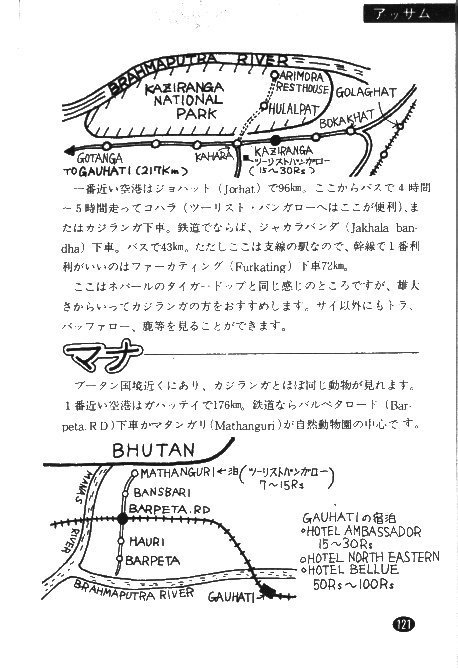 アッサム
BRAHMAPUTRA RIVER
KAZIRANGA
NATIONAL
PARK
ARIMORA
RESTHOUSE
HULALPAT
GOLAGHAT
BOKAKHAT
GOTANGA
KAHARA
KAZIRANGA
ツーリストバンガロー
(15〜30Rs)
TO GAUHATI (217Km)
一番近い空港はジョハット (Jorhat) で96km。ここからバスで4時間
〜5時間走ってコハラ (ツーリスト・バンガローへはここが便利)、ま
たはカジランガ下車。鉄道でならば、ジャカラバンダ (Jakhala ban-
dha) 下車。バスで43km。ただしここは支線の駅なので、幹線で1番利
利がいいのはファーカティング (Furkating) 下車72km。
ここはネパールのタイガードップと同じ感じのところですが、雄大
さからいってカジランガの方をおすすめします。サイ以外にもトラ、
バッファロー、鹿等を見ることができます。
マナ
ブータン国境近くにあり、カジランガとほぼ同じ動物が見れます。
1番近い空港はガハッテイで176km。鉄道ならバルペタロード (Bar-
peta. R D) 下車かマタンガリ (Mathanguri) が自然動物園の中心です。
BHUTAN
MANAS RIVER
MATHANGURI←泊(ツーリストバンガロー)
7〜15Rs
BANSBARI
BARPETA.RD
HAURI
BARPETA
BRAHMAPUTRA RIVER
GAUHATI
GAUHATIの宿泊
○HOTEL AMBASSADOR
15〜30Rs
○HOTEL NORTH EASTERN
○HOTEL BELLUE
50Rs〜100Rs
121